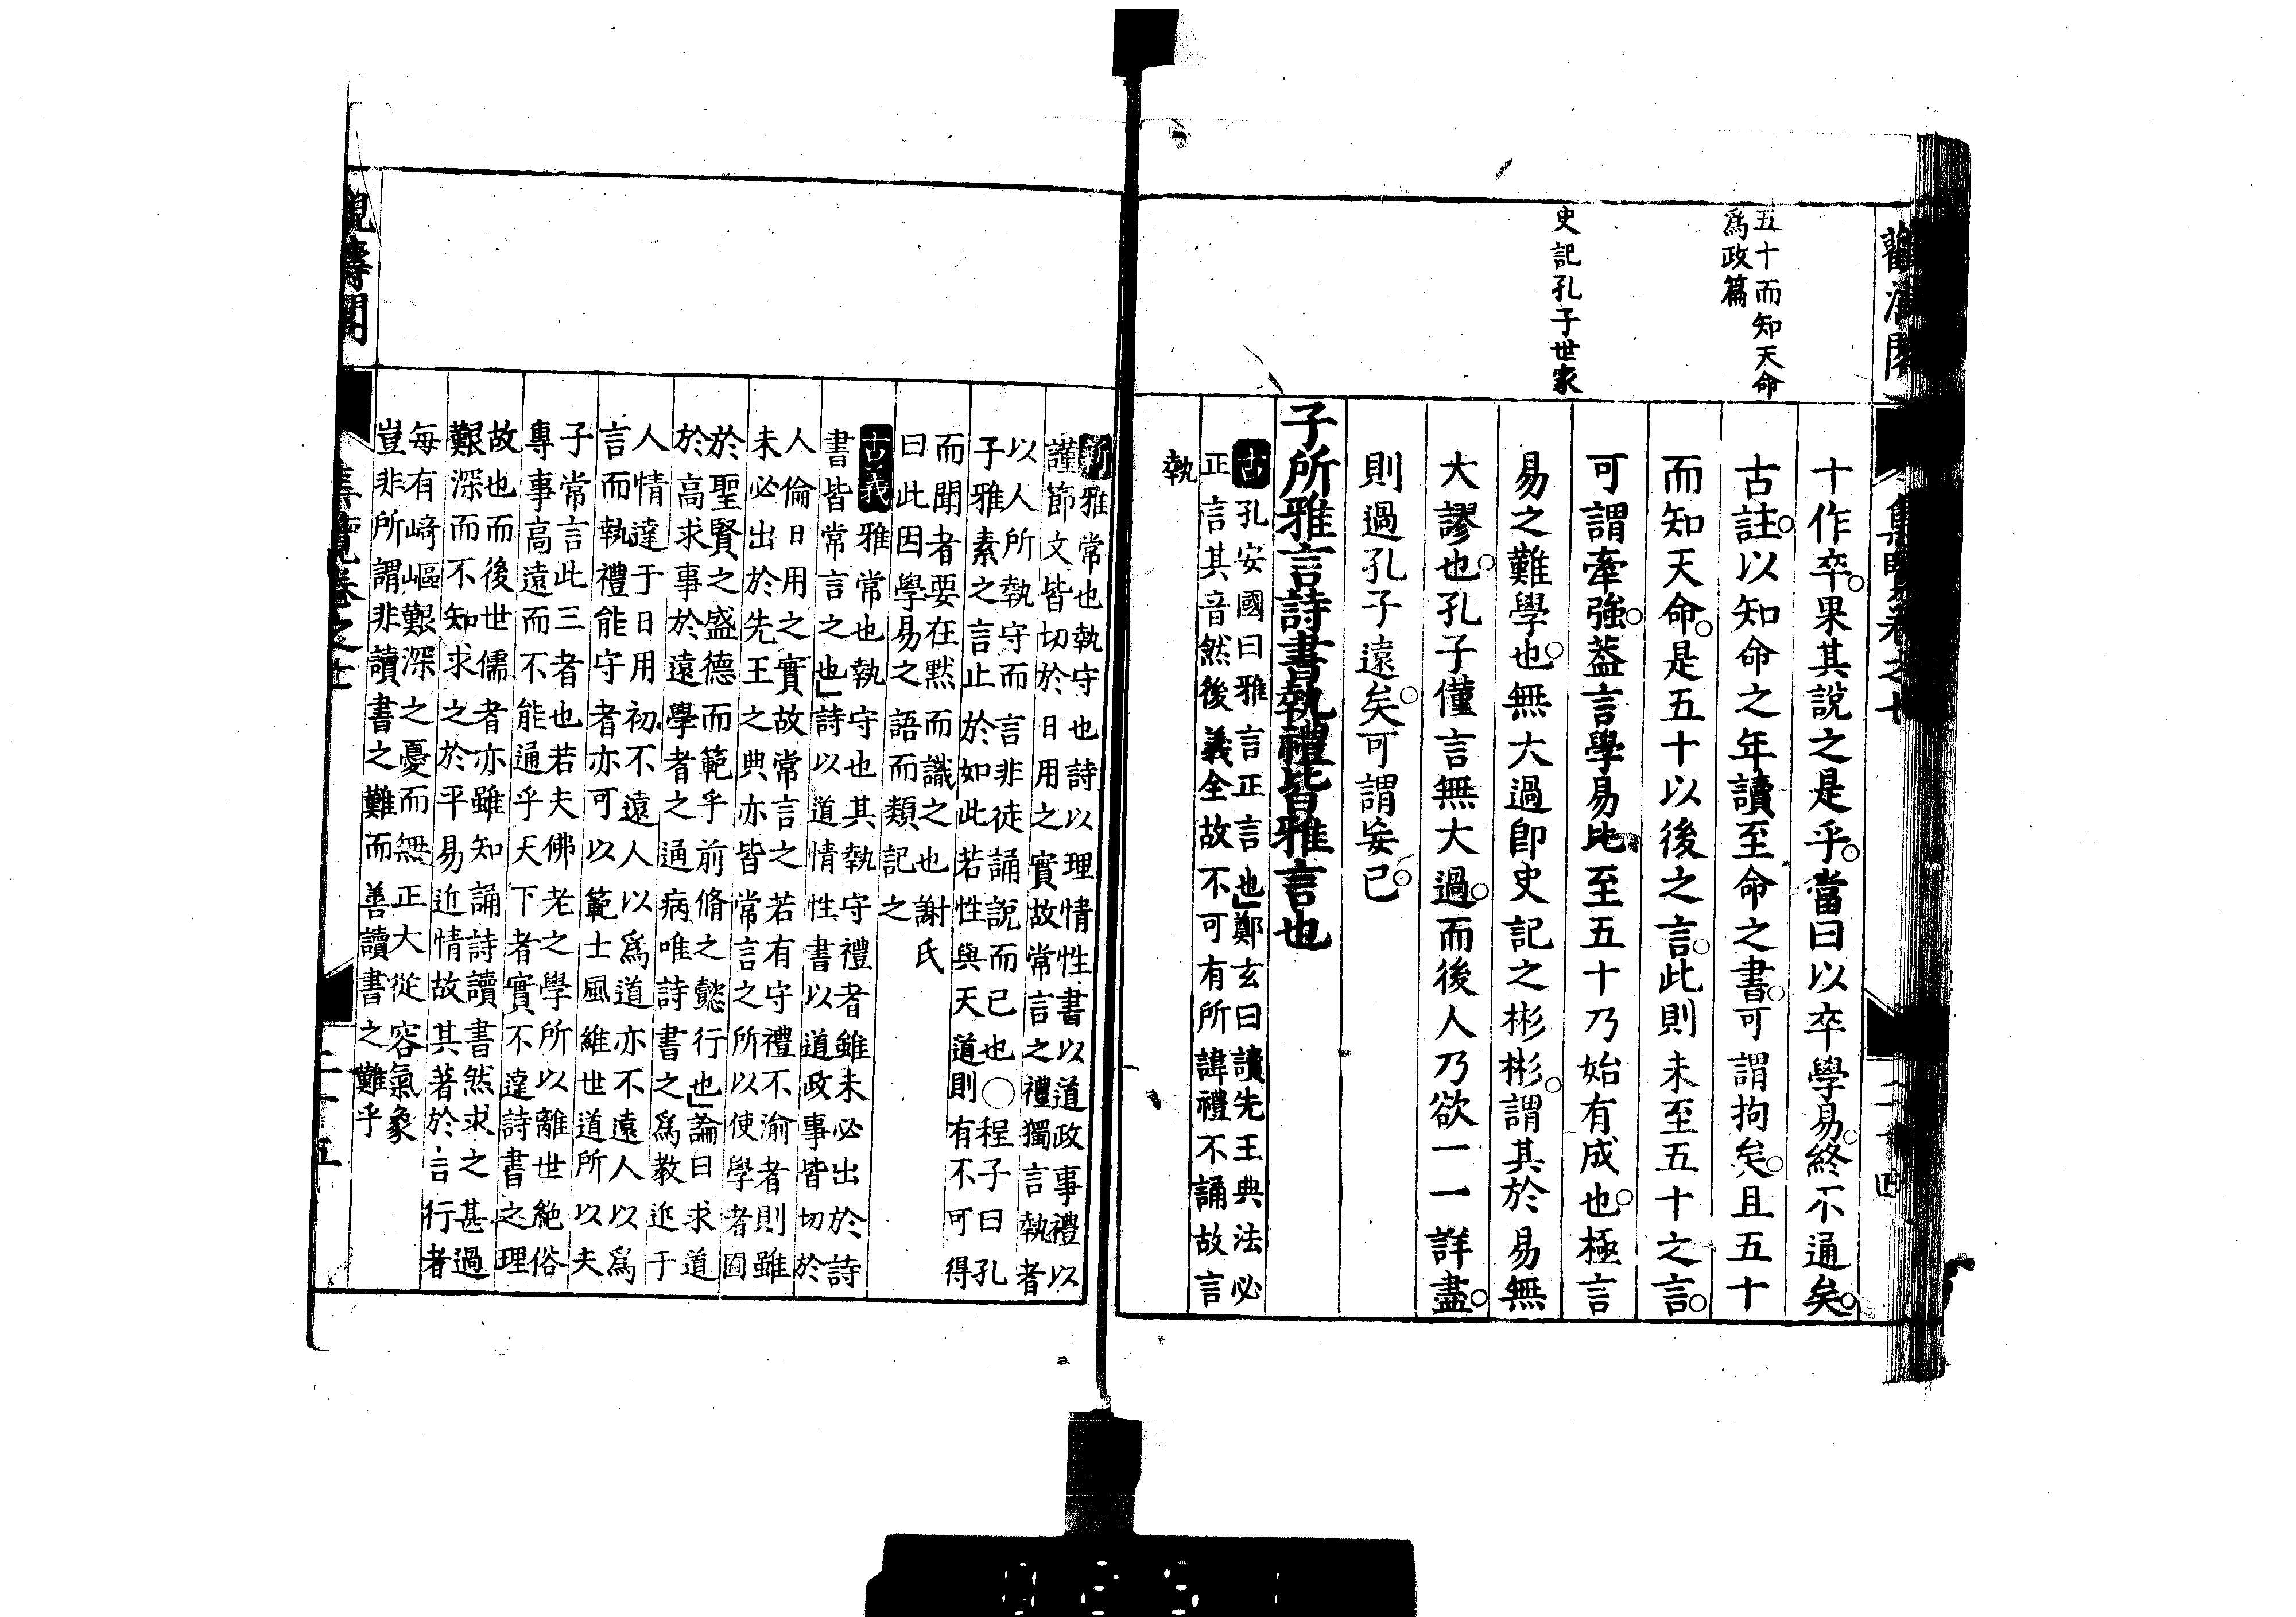 五十而知天命
爲政篇
史記孔子世家
十作卒果其說之是乎當曰以卒學易終不通矣
古註以知命之年讀至命之書可謂拘矣且五十
而知天命是五十以後之言此則未至五十之言
可謂牽強葢言學易比至五十乃始有成也極言
易之難學也無大過卽史記之彬彬謂其於易無
大謬也孔子僅言無大過而後人乃欲一一詳盡
則過孔子遠矣可謂妄已
子所雅言詩書執禮皆雅言也
古孔安國曰雅言正言也」鄭玄曰讀先王典法必
正言其音然後義全故不可有所諱禮不誦故言
執
二十四
新雅常也執守也詩以理情性書以道政事禮以
謹節文皆切於日用之實故常言之禮獨言執者
以人所執守而言非徒誦說而已也○程子曰孔
子雅素之言止於如此若性與天道則有不可得
而聞者要在默而識之也謝氏
曰此因學易之語而類記之
古義雅常也執守也其執守禮者雖未必出於詩
書皆常言之也」詩以道情性書以道政事皆切於
人倫日用之實故常言之若有守禮不渝者則雖
未必出於先王之典亦皆常言之所以使學者囿
於聖賢之盛德而範乎前脩之懿行也」論曰求道
於高求事於遠學者之通病唯詩書之爲教近于
人情達于日用初不遠人以爲道亦不遠人以爲
言而執禮能守者亦可以範士風維世道所以夫
子常言此三者也若夫佛老之學所以離世絶俗
專事高遠而不能通乎天下者實不達詩書之理
故也而後世儒者亦雖知誦詩讀書然求之甚過
艱深而不知求之於平易近情故其著於言行者
每有崎嶇艱深之憂而無正大從容氣象
豈非所謂非讀書之難而善讀書之難乎
觀濤閣
二十五